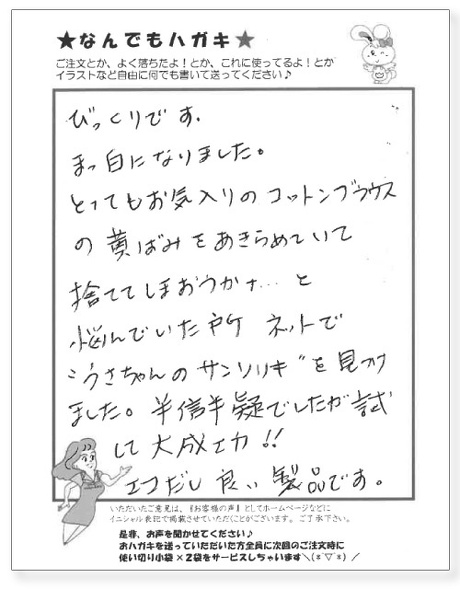 ★なんでもハガキ★
ご注文とか、よく落ちたよ！とか、これに使ってるよ！とか
イラストなど自由に何でも書いて送ってください♪
びっくりです。
まっ白になりました。
とってもお気入りのコットンブラウス
の黄ばみをあきらめていて
捨ててしまおうかナ…と
悩んでいた所 ネットで
“うさちゃんのサンソリキ”を見つけ
ました。半信半疑でしたが試
して大成功!!
エコだし良い製品です。
いただいたご意見は、『お客様の声』としてホームページなどに
イニシャル表記で掲載させていただくことがございます。ご了承下さい。
是非、お声を聞かせてください♪
おハガキを送っていただいた方全員に次回のご注文時に
使い切り小袋×2袋をサービスしちゃいます＼(*´▽`*)／